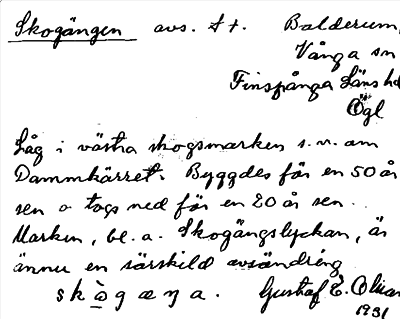 Skogängen avs. t t. Balderum,
Vånga sn
Finspånga läns hd
Ögl
Låg i västra skogsmarken s.v. om
Dammkärret. Byggdes för en 50 år
sen o togs ned för en 20 år sen.
Marken, bl. a. Skogängslyckan, är
ännu en särskild avsöndring
skògæŋa. Gustaf E.
1931